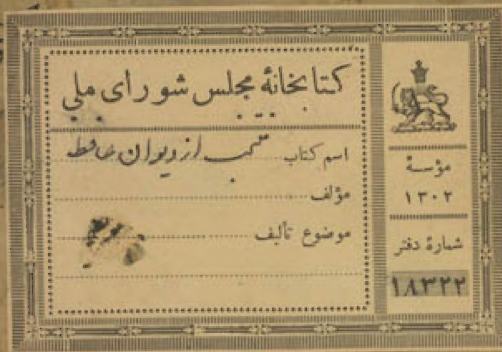 کتابخانهٔ مجلس شورای ملی
اسم کتاب منتخب از دیوان حافظ
مؤلف
موضوع تألیف
مؤسسهٔ
۱۳۰۲
شمارهٔ دفتر
۱۸۳۲۲